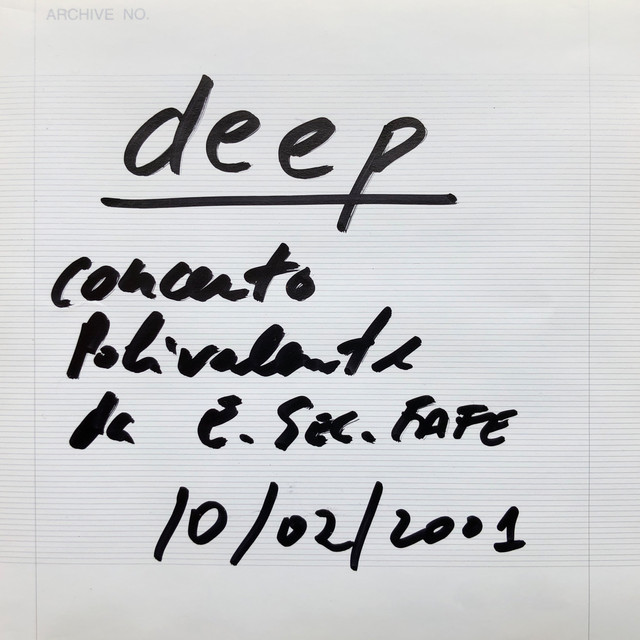 ARCHIVE NO.
deep
concerto
Polivalente
da E. Sec. FAFE
10/02/2001